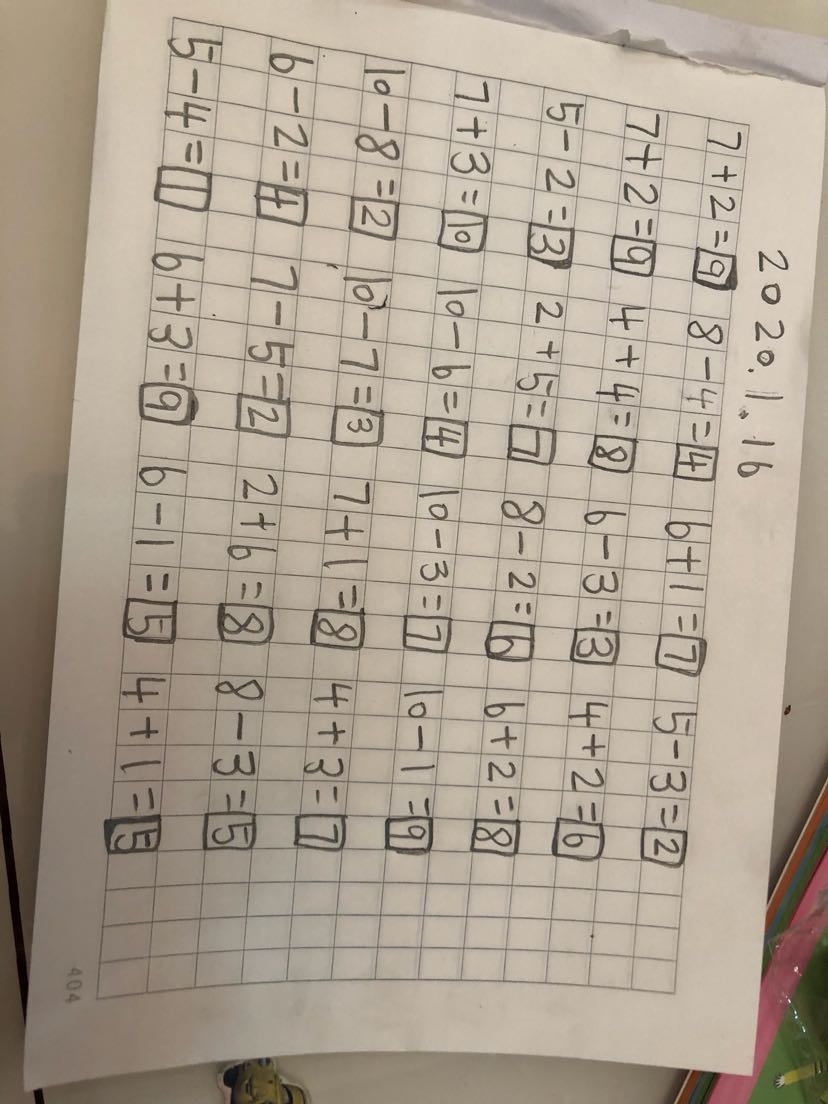 2020.1.16
7+2=9 8-4=4 6+1=7 5-3=2
7+2=9 4+4=8 6-3=3 4+2=6
5-2=3 2+5=7 8-2=6 6+2=8
7+3=10 10-6=4 10-3=7 10-1=9
10-8=2 10-7=3 7+1=8 4+3=7
6-2=4 7-5=2 2+6=8 8-3=5
5-4=1 6+3=9 6-1=5 4+1=5
404